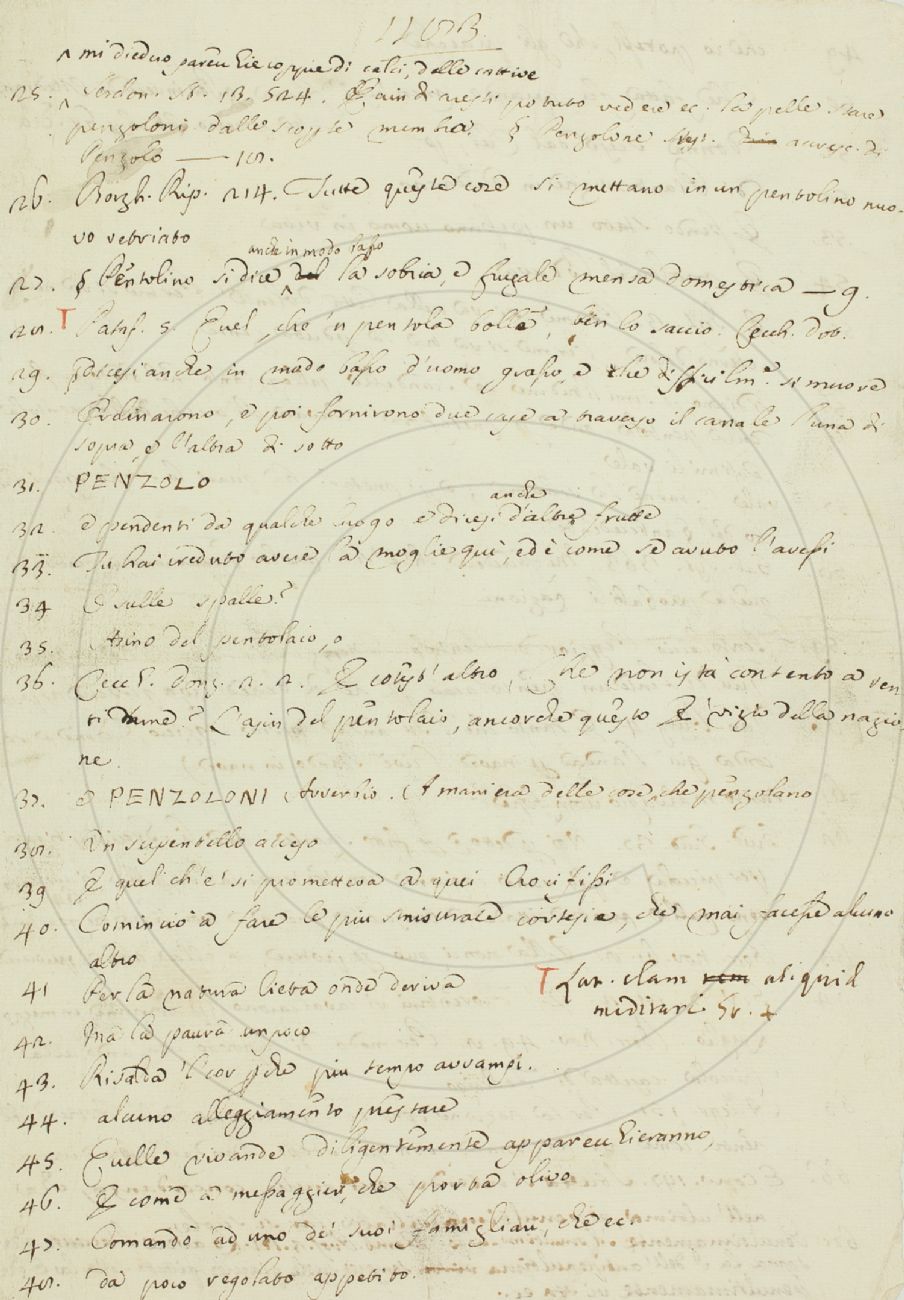 ^ mi diedero parecchie coppie di calci, delle cattive
25. ^ 13. 524. potuto vedere ec. la pelle stare
penzoloni dalle scoppate membra. § Penzolone avverb. di
Penzolo — 10.
26. Borgh. Rip. 214. Tutte queste cose si mettano in un pentolino nuo-
vo vetriato
anche in modo basso
27. § Pentolino si dice ^ la sobria, e frugale mensa domestica — 9.
28. T Pataf. 5. Quel, che 'n pentola bolle, ben lo saccio. Cecch. Dot.
29. § Dicesi anche in modo basso d'uomo grasso, e che difficilm.e si muove
30. Ordinarono, e poi fornirono due case a traverso il canale l'una di
sopra, e l'altra di sotto
31. PENZOLO
anche
32. e pendenti da qualche luogo e dicesi d'altre frutte
33. Tu hai creduto avere la moglie qui, ed è come se avuto l'avessi
34 O sulle spalle?
35. Asino del pentolaio, o
36. Cecch. Donz. 2. 2. E cotest' altro, Che non istà contento a ven
ti dame? L'asin del pentolaio, ancorche questo E' vizio della nazio-
ne.
37. a PENZOLONI Avverbio. A maniera delle cose, che penzolano
38. Un scipentello acceso
39 E quel ch'e' si prometteva a quei Crocifissi
40. Cominciò a fare le più smisurate cortesie, che mai facesse alcuno
altro
41 Per la natura lieta onde deriva
T Lat. clam rem aliquid
meditari Sr. +
42. Ma la paura un poco
43. Risalda 'l cor perche più tempo avvampi.
44. alcuno alleggiamento prestare
45. Quelle vivande diligentemente apparecchieranno,
46. E come a messaggier, che porta olivo
47. Comandò ad uno de' suoi famigliari, che ec.
48. da poco regolato appetito.